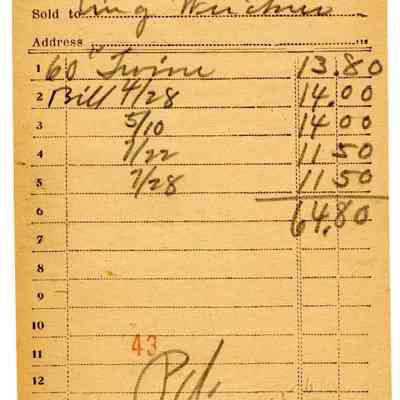 Sold to
Address
1 60 " Twine 13.80
2 Bill 4/28 14.00
3 5/10 14.00
4 7/22 11 50
5 7/28 11 50
6 64.80
7
8
9
10
43
11
12